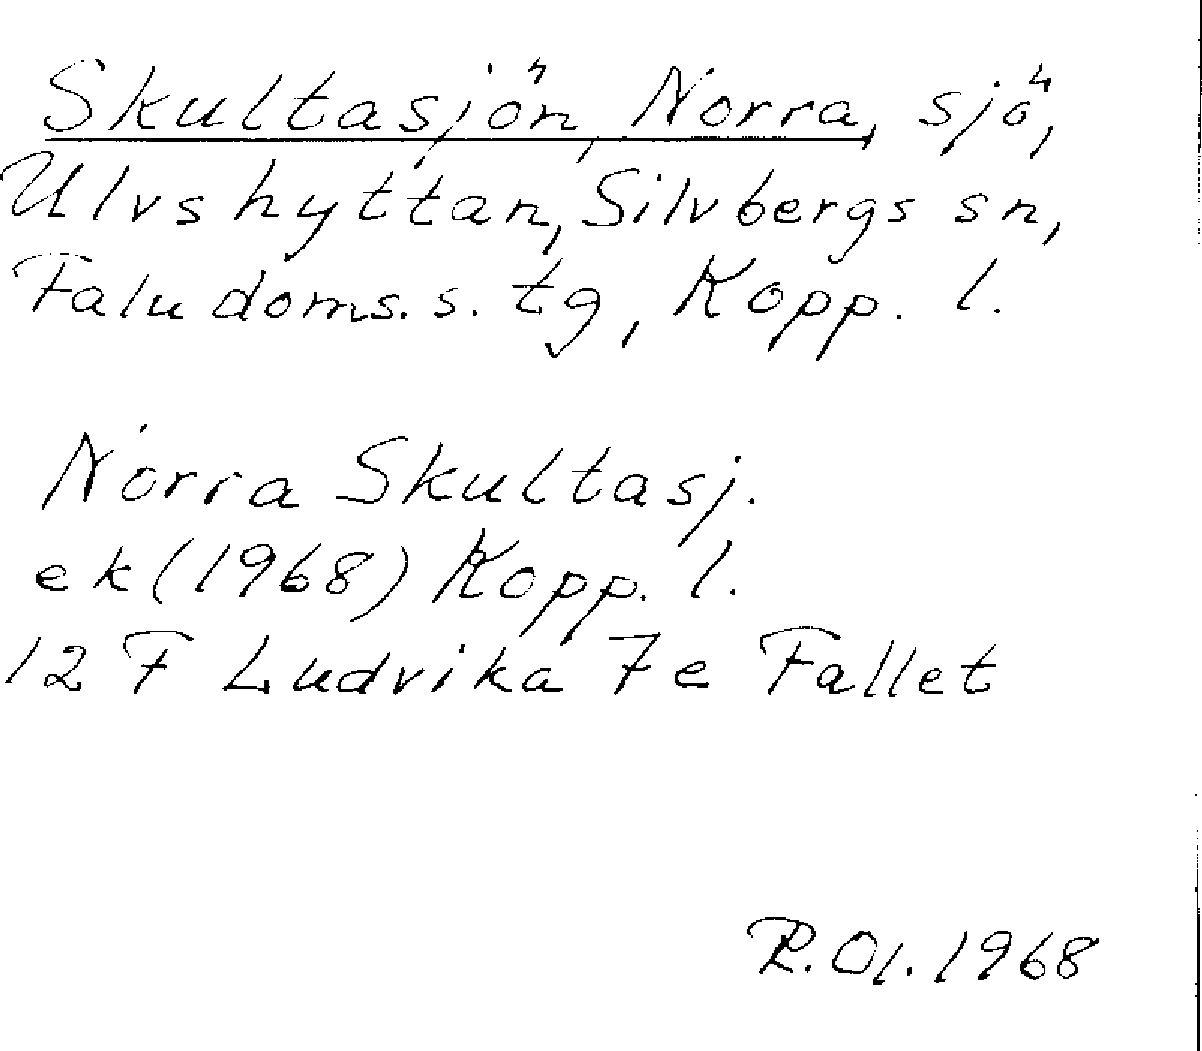 Skultasjön, Norra, sjö,
Ulvshyttan, Silvbergs sn,
Falu doms. s. tg, Kopp. l.
Norra Skultasj.
ek (1968) Kopp. l.
12 F Ludvika 7 e Fallet
R. Ol. 1968